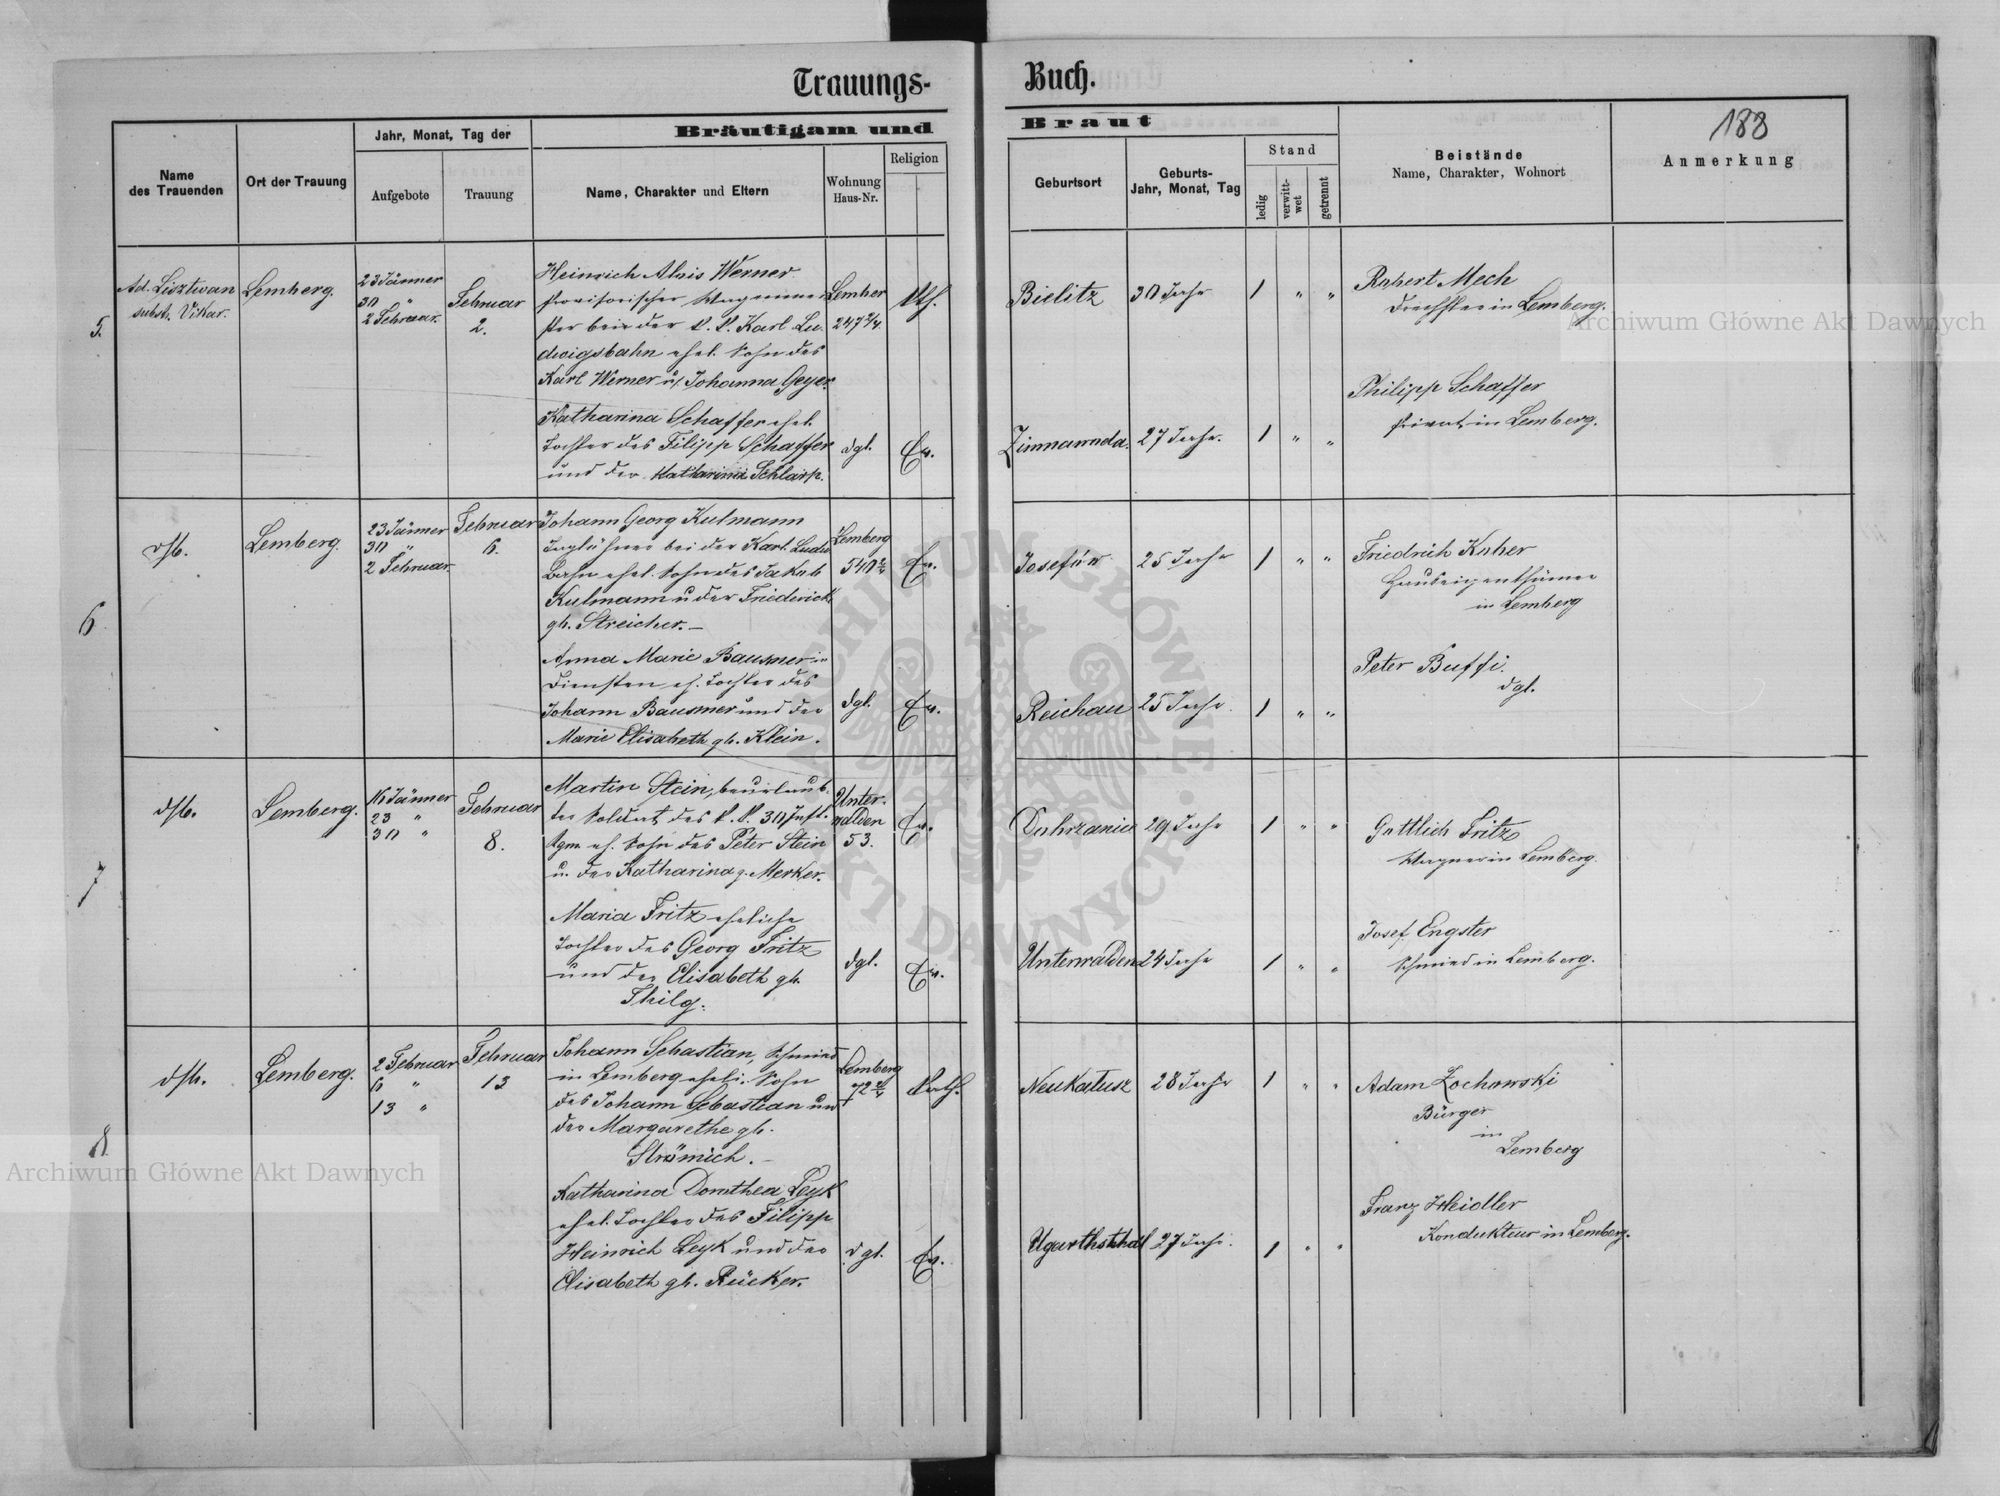 Trauungs-
Buch.
188
Name des Trauenden
Ort der Trauung
Jahr, Monat, Tag der
Aufgebote
Trauung
Bräutigam und
Name, Charakter und Eltern
Wohnung Haus-Nr.
Religion
Braut
Geburtsort
Geburts-Jahr, Monat, Tag
Stand
ledig
verwittwet
getrennt
Beistände
Name, Charakter, Wohnort
Anmerkung
5.
Ad. Lisztwan
subst. Vikar.
Lemberg.
23 Jänner
30 "
2 Februar.
Februar
2.
Heinrich Alois Werner
provisorischer Wagenmei
ster bei der k. k. Karl Lu
dwigsbahn ehel. Sohn des
Karl Werner u/ Johanna Geyer.
Lember
247 2/4.
Kth.
Bielitz
30 Jahr
1 " "
Robert Mech
Drechsler in Lemberg.
Katharina Schaffer ehel.
Tochter des Filipp Schaffer
und der Katharina Schlarp.
dgl.
Ev.
Zimnawoda.
27 Jahr.
1 " "
Philipp Schaffer
Privat in Lemberg.
6
dsb.
Lemberg.
23 Jänner
30 "
2 Februar.
Februar
6.
Johann Georg Kulmann
Taglöhner bei der Karl Ludw
Bahn ehel. Sohn des Jakob
Kulmann u der Friederick
gb. Streicher. –
Lemberg
540 2/4
Ev.
Josefów
25 Jahr
1 " "
Friedrich Koher
Hauseigenthümer
in Lemberg
Anna Marie Bausmer in
Diensten eh. Tochter des
Johann Bausmer und der
Marie Elisabeth gb. Klein.
dgl.
Ev.
Reichau
25 Jahr
1 " "
Peter Buffi.
dgl.
7
dsb.
Lemberg.
16 Jänner
23 "
30 "
Februar
8.
Martin Stein, beurlaub-
ter Soldat des k. k. 30 Inft.
Rgm. eh. Sohn des Peter Stein
u. der Katharina g. Merker.
Unter-
walden
53.
Ev.
Dobrzanice
29 Jahr
1 " "
Gottlieb Fritz
Wagner in Lemberg.
Maria Fritz eheliche
Tochter des Georg Fritz
und der Elisabeth gb.
Thilg.
dgl.
Ev.
Unterwalden
24 Jahr
1 " "
Josef Engster
Schmied in Lemberg.
8
dsb.
Lemberg.
2 Februar
6 "
13 "
Februar
13
Johann Sebastian, Schmied
in Lemberg eheli. Sohn
des Johann Sebastian und
der Margarethe gb.
Strömich. –
Lemberg
72 2/4
Kath.
Neu Kalusz
28 Jahr
1 " "
Adam Zochowski
Bürger
in
Lemberg
Katharina Dorothea Leyk
ehel. Tochter des Filipp
Heinrich Leyk und der
Elisabeth gb. Rücker.
dgl.
Ev.
Ugarthsthal
27 Jahr.
1 " "
Franz Heidler
Kondukteur in Lemberg.
Archiwum Główne Akt Dawnych
Archiwum Główne Akt Dawnych
ARCHIWUM GŁÓWNE AKT DAWNYCH